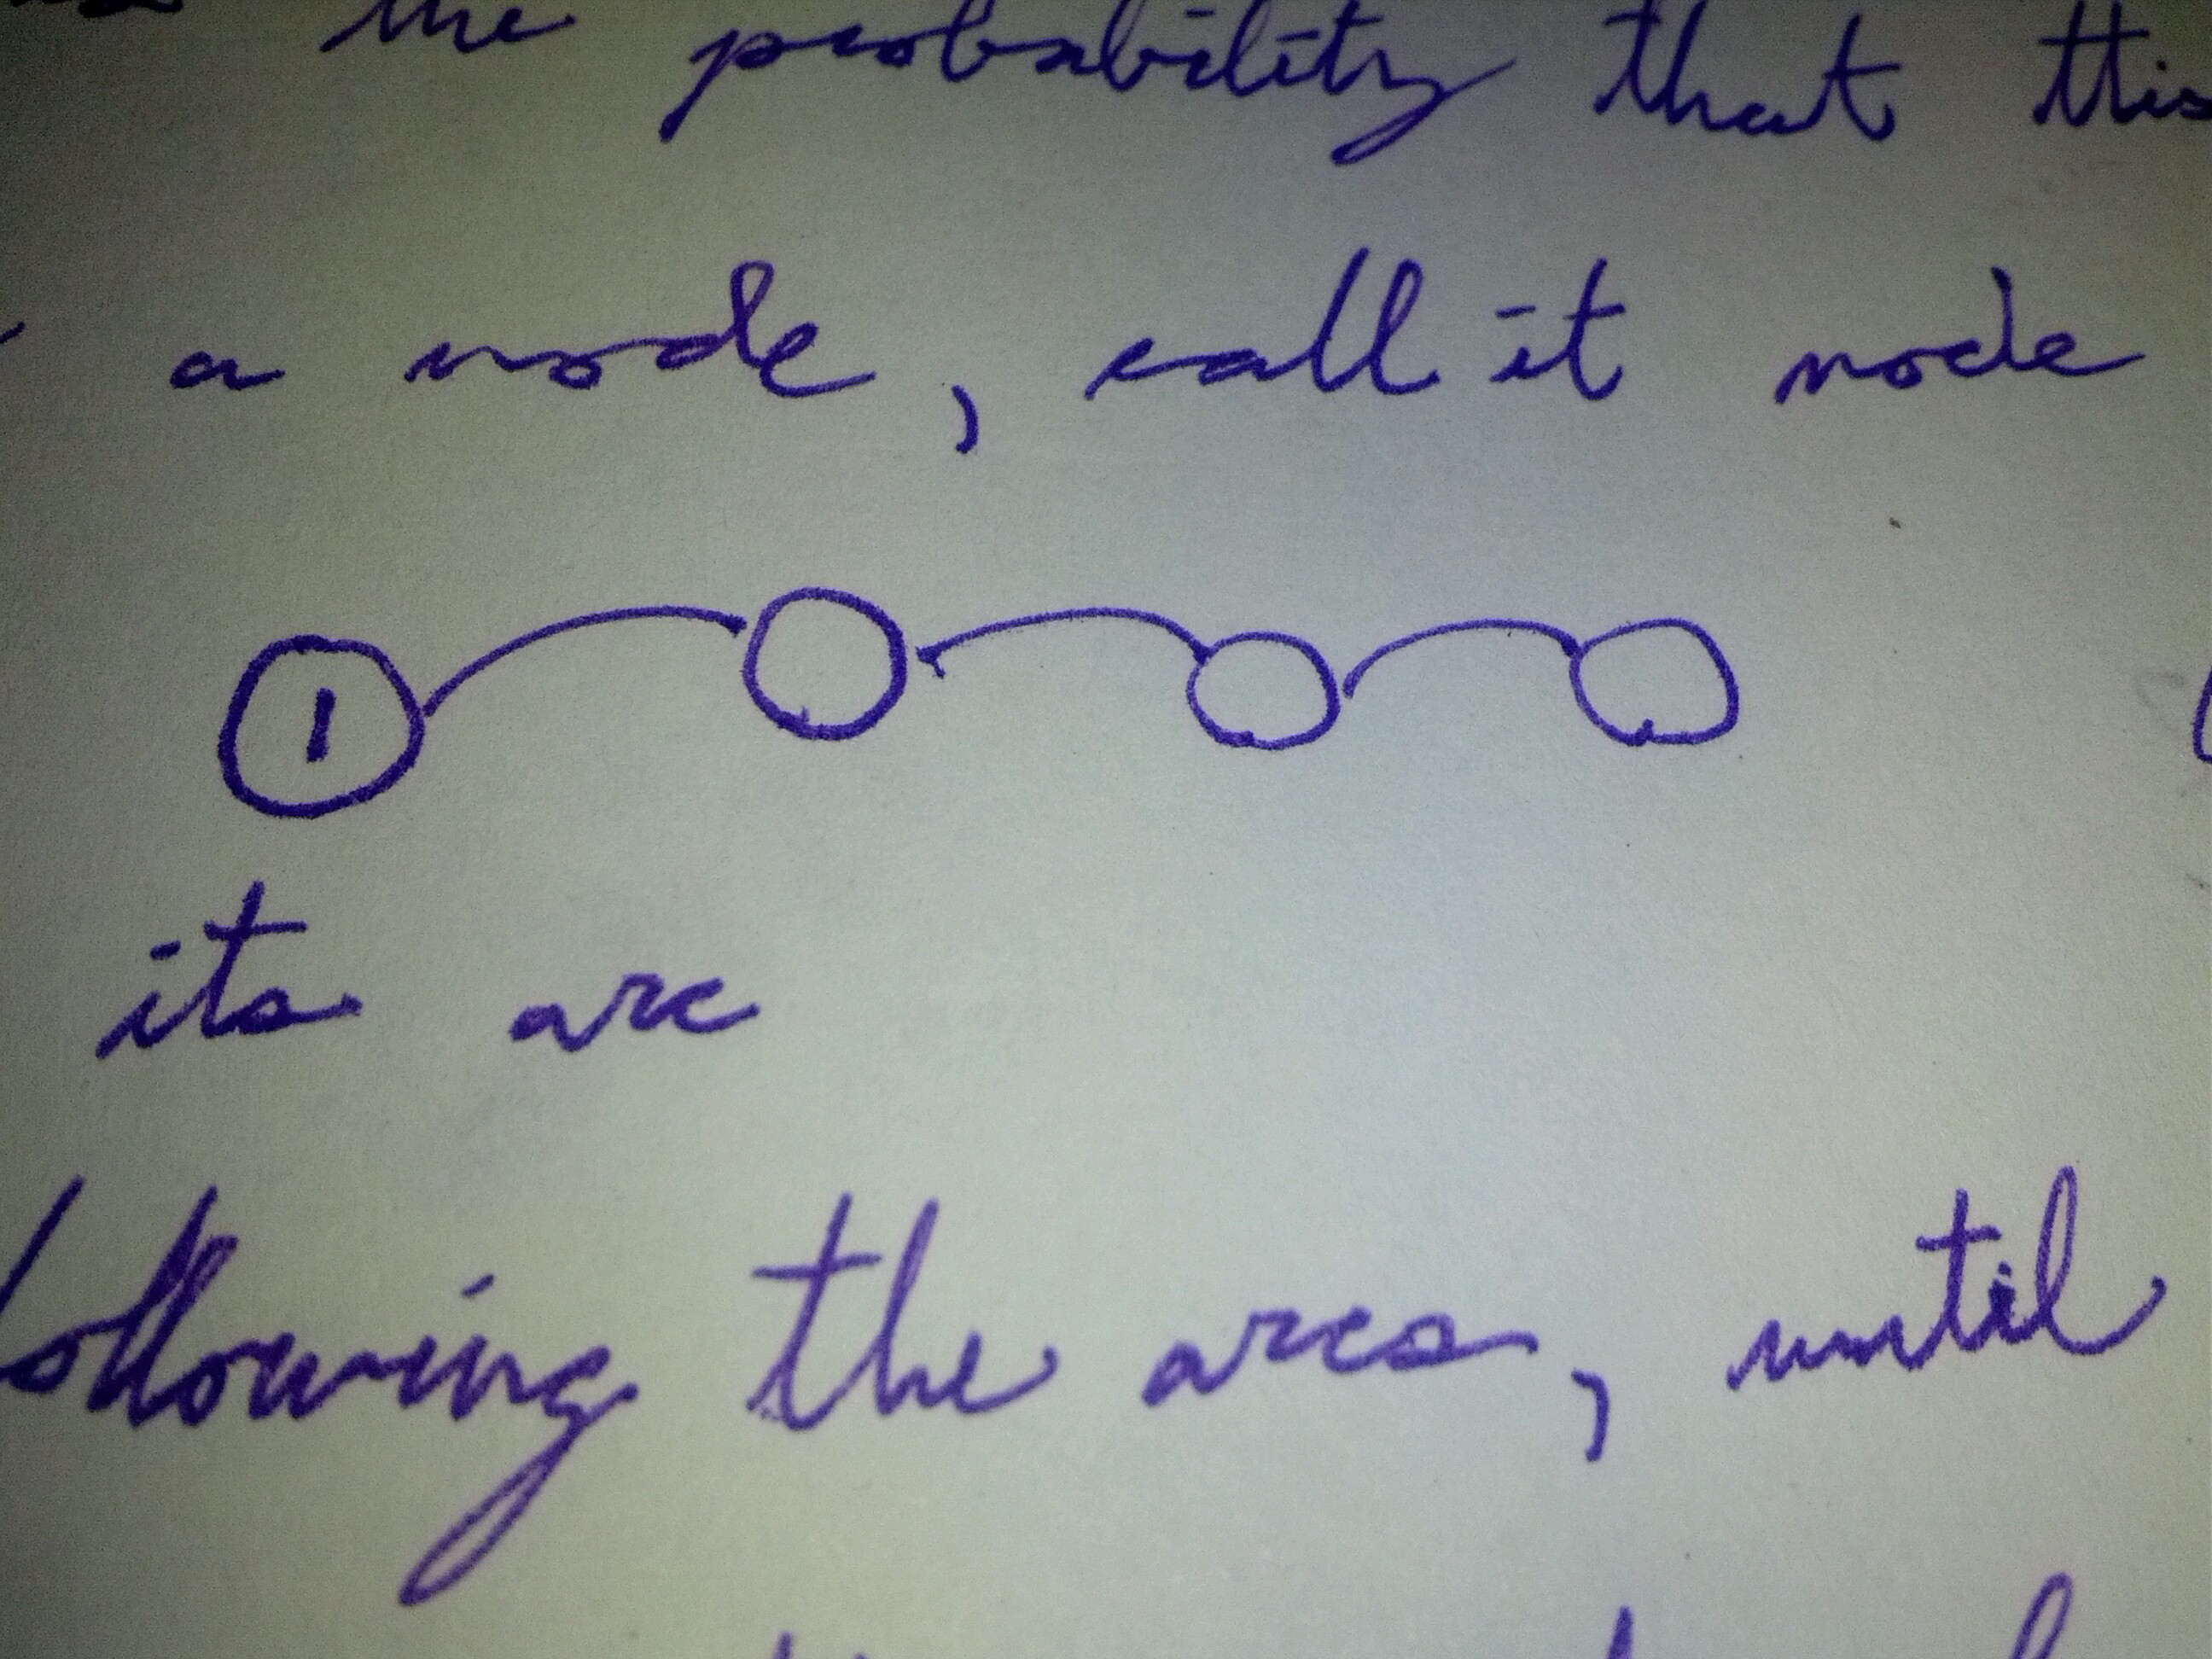 the probability that this
a node, call it node
1
its arc
following the arcs, until